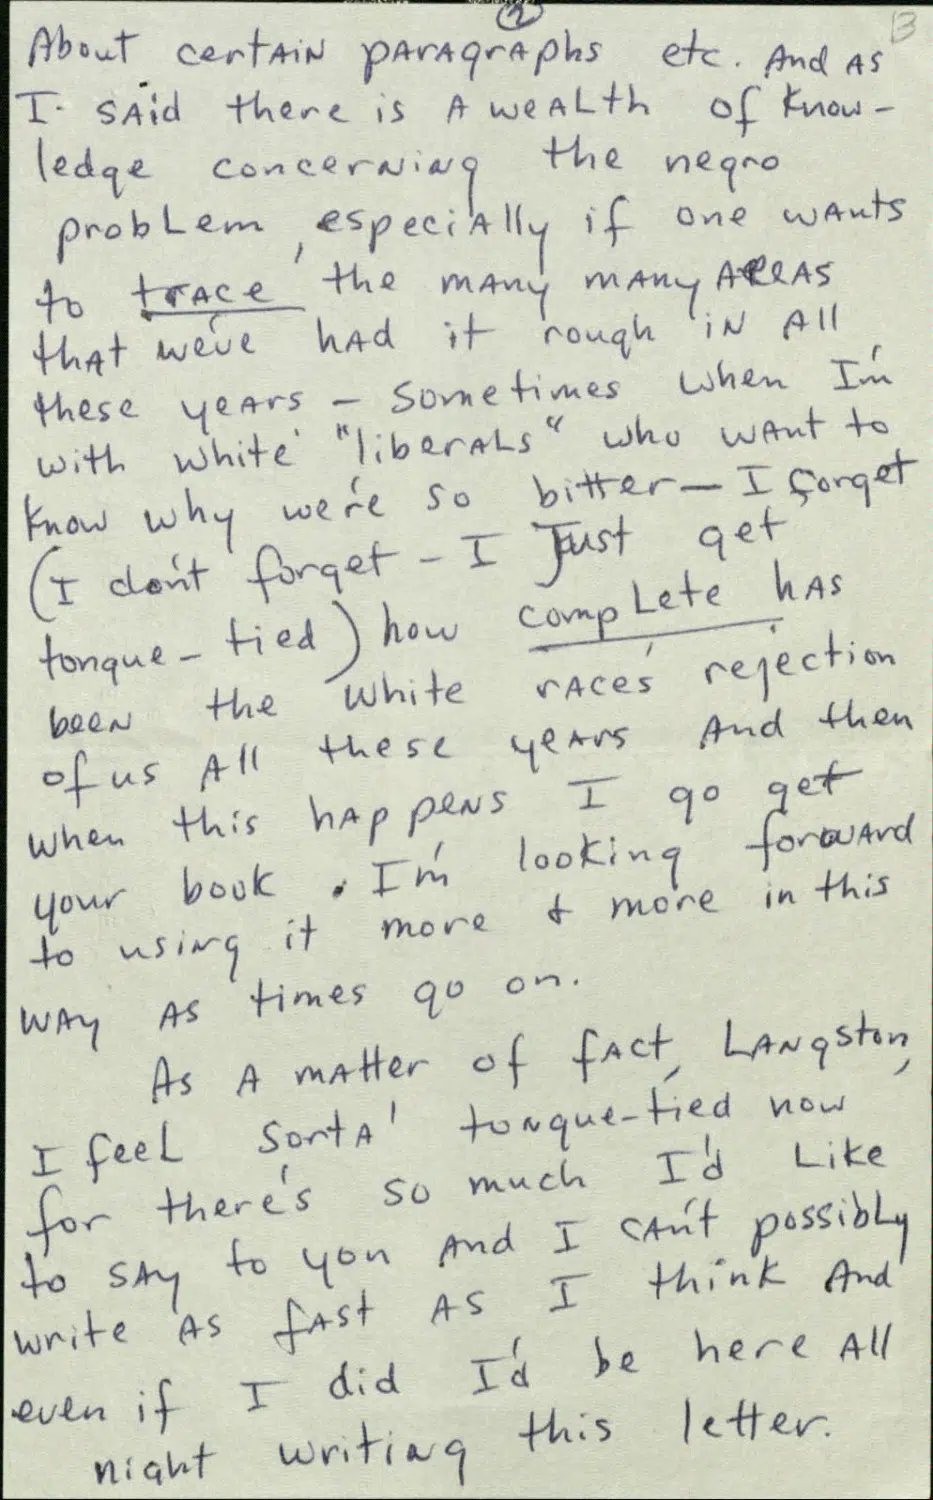 2
B
About certain paragraphs etc. And as
I said there is a wealth of know-
ledge concerning the negro
problem, especially if one wants
to trace the many many areas
that we've had it rough in all
these years - Sometimes when I'm
with white "liberals" who want to
know why we're so bitter - I forget
(I don't forget - I Just get
tongue-tied) how complete has
been the white races' rejection
of us all these years And then
when this happens I go get
your book. I'm looking forward
to using it more & more in this
way as times go on.
As a matter of fact, Langston,
I feel sorta' tongue-tied now
for there's so much I'd Like
to say to you and I can't possibly
write as fast as I think And
even if I did I'd be here all
night writing this letter.